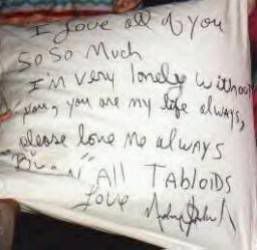 I Love all of you
So So Much
I'm very lonely without
you, you are my life always,
please love me always
"Burn" All Tabloids
Love